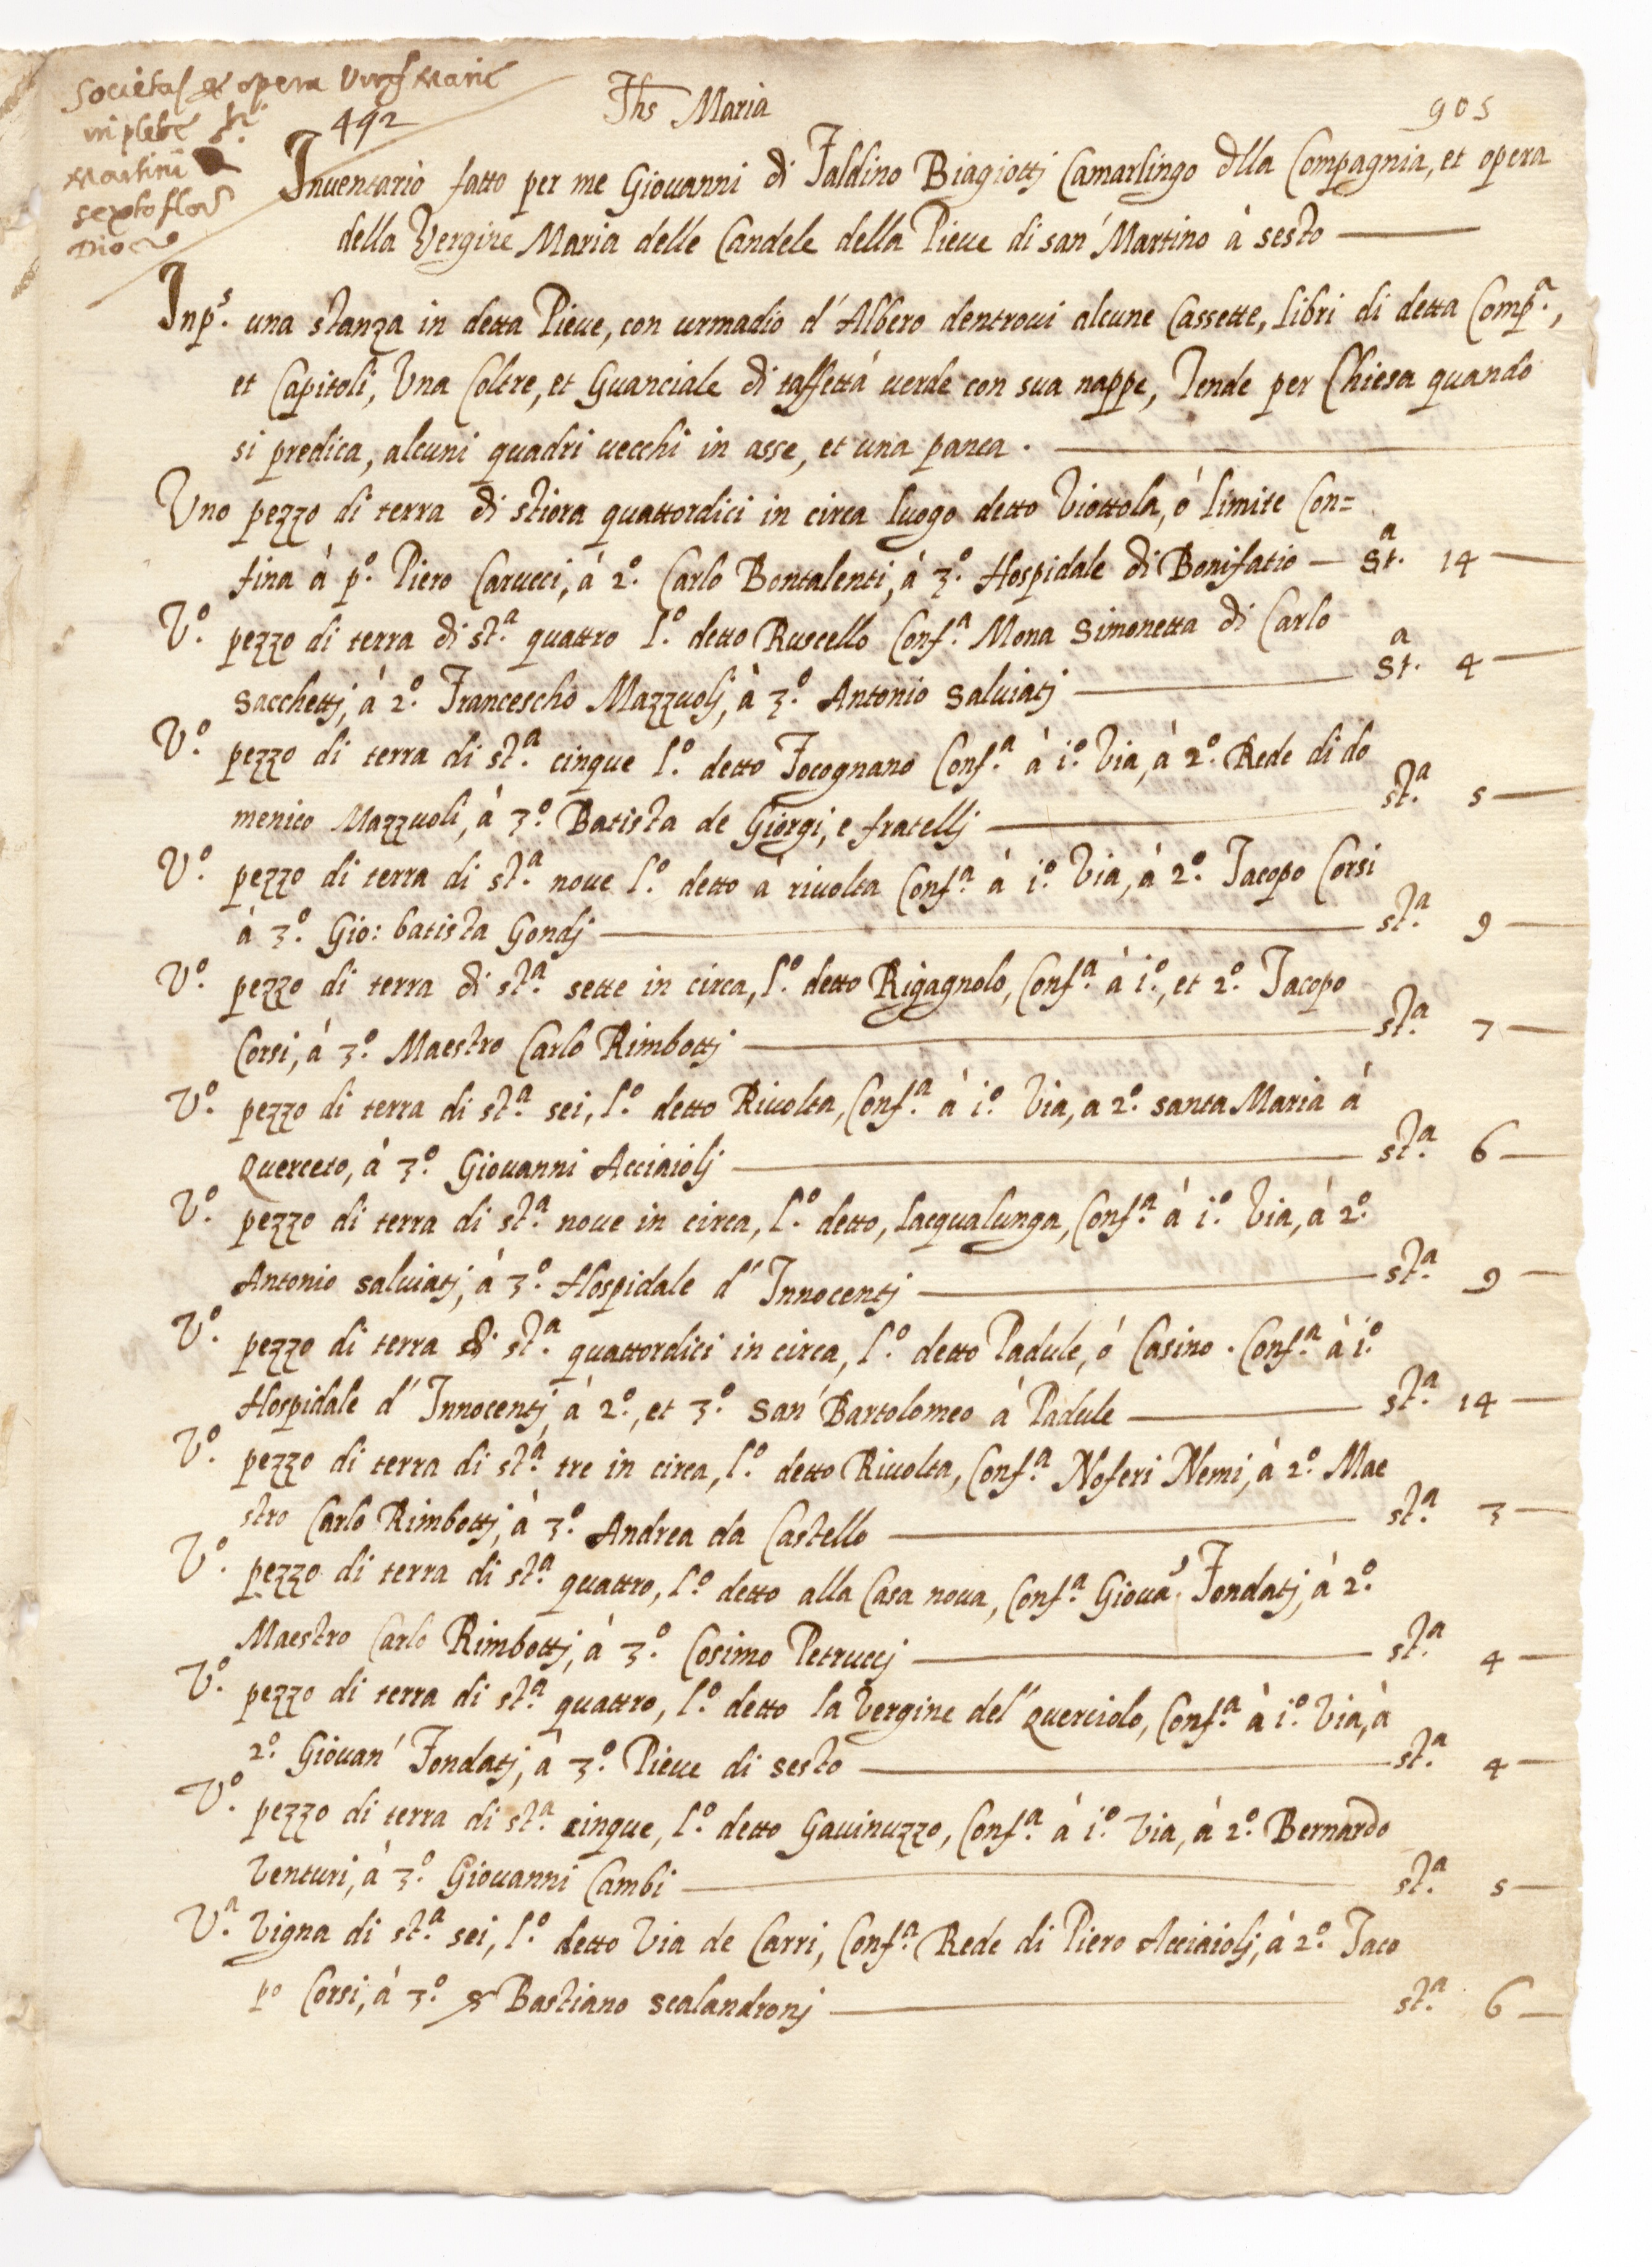 Societas et opera Virg Marie
in plebe S.ti
Martini
sexto flor
Dioc
492
Jhs Maria
905
Inuentario fatto per me Giouanni di Faldino Biagiottj Camarlingo dlla Compagnia, et opera
della Vergine Maria delle Candele della Pieue di san' Martino à sesto
Inp.s una stanza in detta Pieue, con urmadio d'Albero dentroui alcune Cassette, libri di detta Comp.a,
et Capitoli, Una Coltre, et Guanciale di taffettà uerde con sua nappe, Tende per Chiesa quando
si predica, alcuni quadri uecchi in asse, et una panca.
Uno pezzo di terra di stiora quattordici in circa luogo detto Viottola, ò limite Con=
fina à p.o Piero Carucci, à 2.o Carlo Bontalenti, à 3.o Hospidale di Bonifatio — St.a 14 —
V.o pezzo di terra di st.a quattro l.o detto Ruscello Conf.a Mona Simonetta di Carlo
Sacchettj, à 2.o Francescho Mazzuolj, à 3.o Antonio Saluiatj — St.a 4 —
V.o pezzo di terra di st.a cinque l.o detto Focognano Conf.a à i.o Via, à 2.o Rede di do
menico Mazzuoli, à 3.o Batista de Giorgi, e fratellj — st.a 5 —
V.o pezzo di terra di st.a noue l.o detto à riuolta Conf.a à i.o Via, à 2.o Jacopo Corsi
à 3.o Gio: batista Gondj — st.a 9 —
V.o pezzo di terra di st.a sette in circa, l.o detto Rigagnolo, Conf.a à i.o, et 2.o Jacopo
Corsi, à 3.o Maestro Carlo Rimbottj — st.a 7 —
V.o pezzo di terra di st.a sei, l.o detto Riuolta, Conf.a à i.o Via, a 2.o santa Maria à
Querceto, à 3.o Giouanni Acciaiolj — st.a 6 —
V.o pezzo di terra di st.a noue in circa, l.o detto, lacqualunga, Conf.a à i.o Via, à 2.o
Antonio saluiatj, à 3.o Hospidale d'Innocentj — st.a 9 —
V.o pezzo di terra di st.a quattordici in circa, l.o detto Padule, ò Casino. Conf.a à i.o
Hospidale d'Innocentj, à 2.o, et 3.o San' Bartolomeo à Padule — st.a 14 —
V.o pezzo di terra di st.a tre in circa, l.o detto Riuolta, Conf.a Noferi Nemi, à 2.o Mae
stro Carlo Rimbottj, à 3.o Andrea da Castello — st.a 3 —
V.o pezzo di terra di st.a quattro, l.o detto alla Casa noua, Conf.a Gioua' Fondatj, à 2.o
Maestro Carlo Rimbottj, à 3.o Cosimo Petruccj — st.a 4 —
V.o pezzo di terra di st.a quattro, l.o detto la Vergine del' Querciolo, Conf.a à i.o Via, à
2.o Giouan' Fondatj, à 3.o Pieue di sesto — st.a 4 —
V.o pezzo di terra di st.a cinque, l.o detto Gauinuzzo, Conf.a à i.o Via, à 2.o Bernardo
Venturi, à 3.o Giouanni Cambi — st.a 5 —
V.a Vigna di st.a sei, l.o detto Via de Carri, Conf.a Rede di Piero Acciaiolj, à 2.o Jaco
po Corsi, à 3.o Bastiano Scalandronj — st.a 6 —